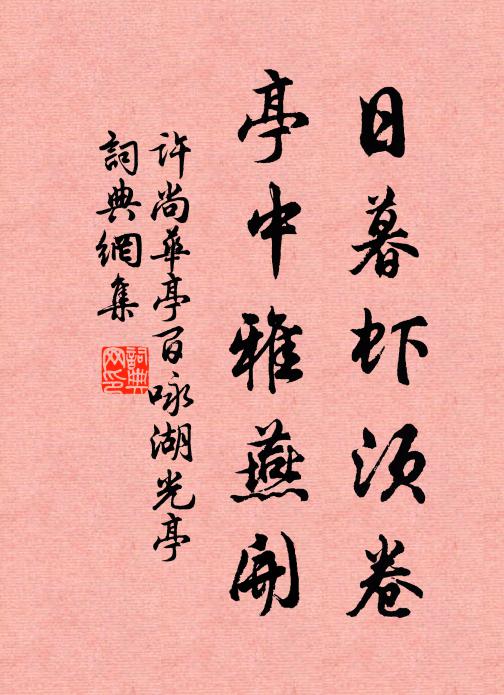 日暮虾须卷
亭中雅燕開
許尚華亭百咏湖光亭
詞典網集
詞典
网印